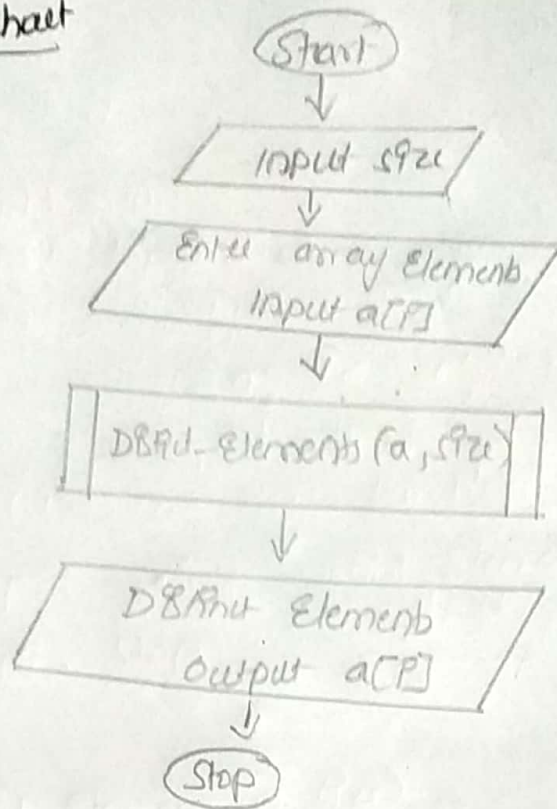 Start
Input size
Enter array Elements
Input a[i]
Elements (a, size)
Distinct Elements
Output a[i]
Stop